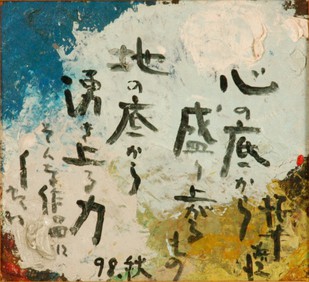 心の底から
盛り上がる
もの
地の底から
湧き上る力
そんな作品に
98.秋